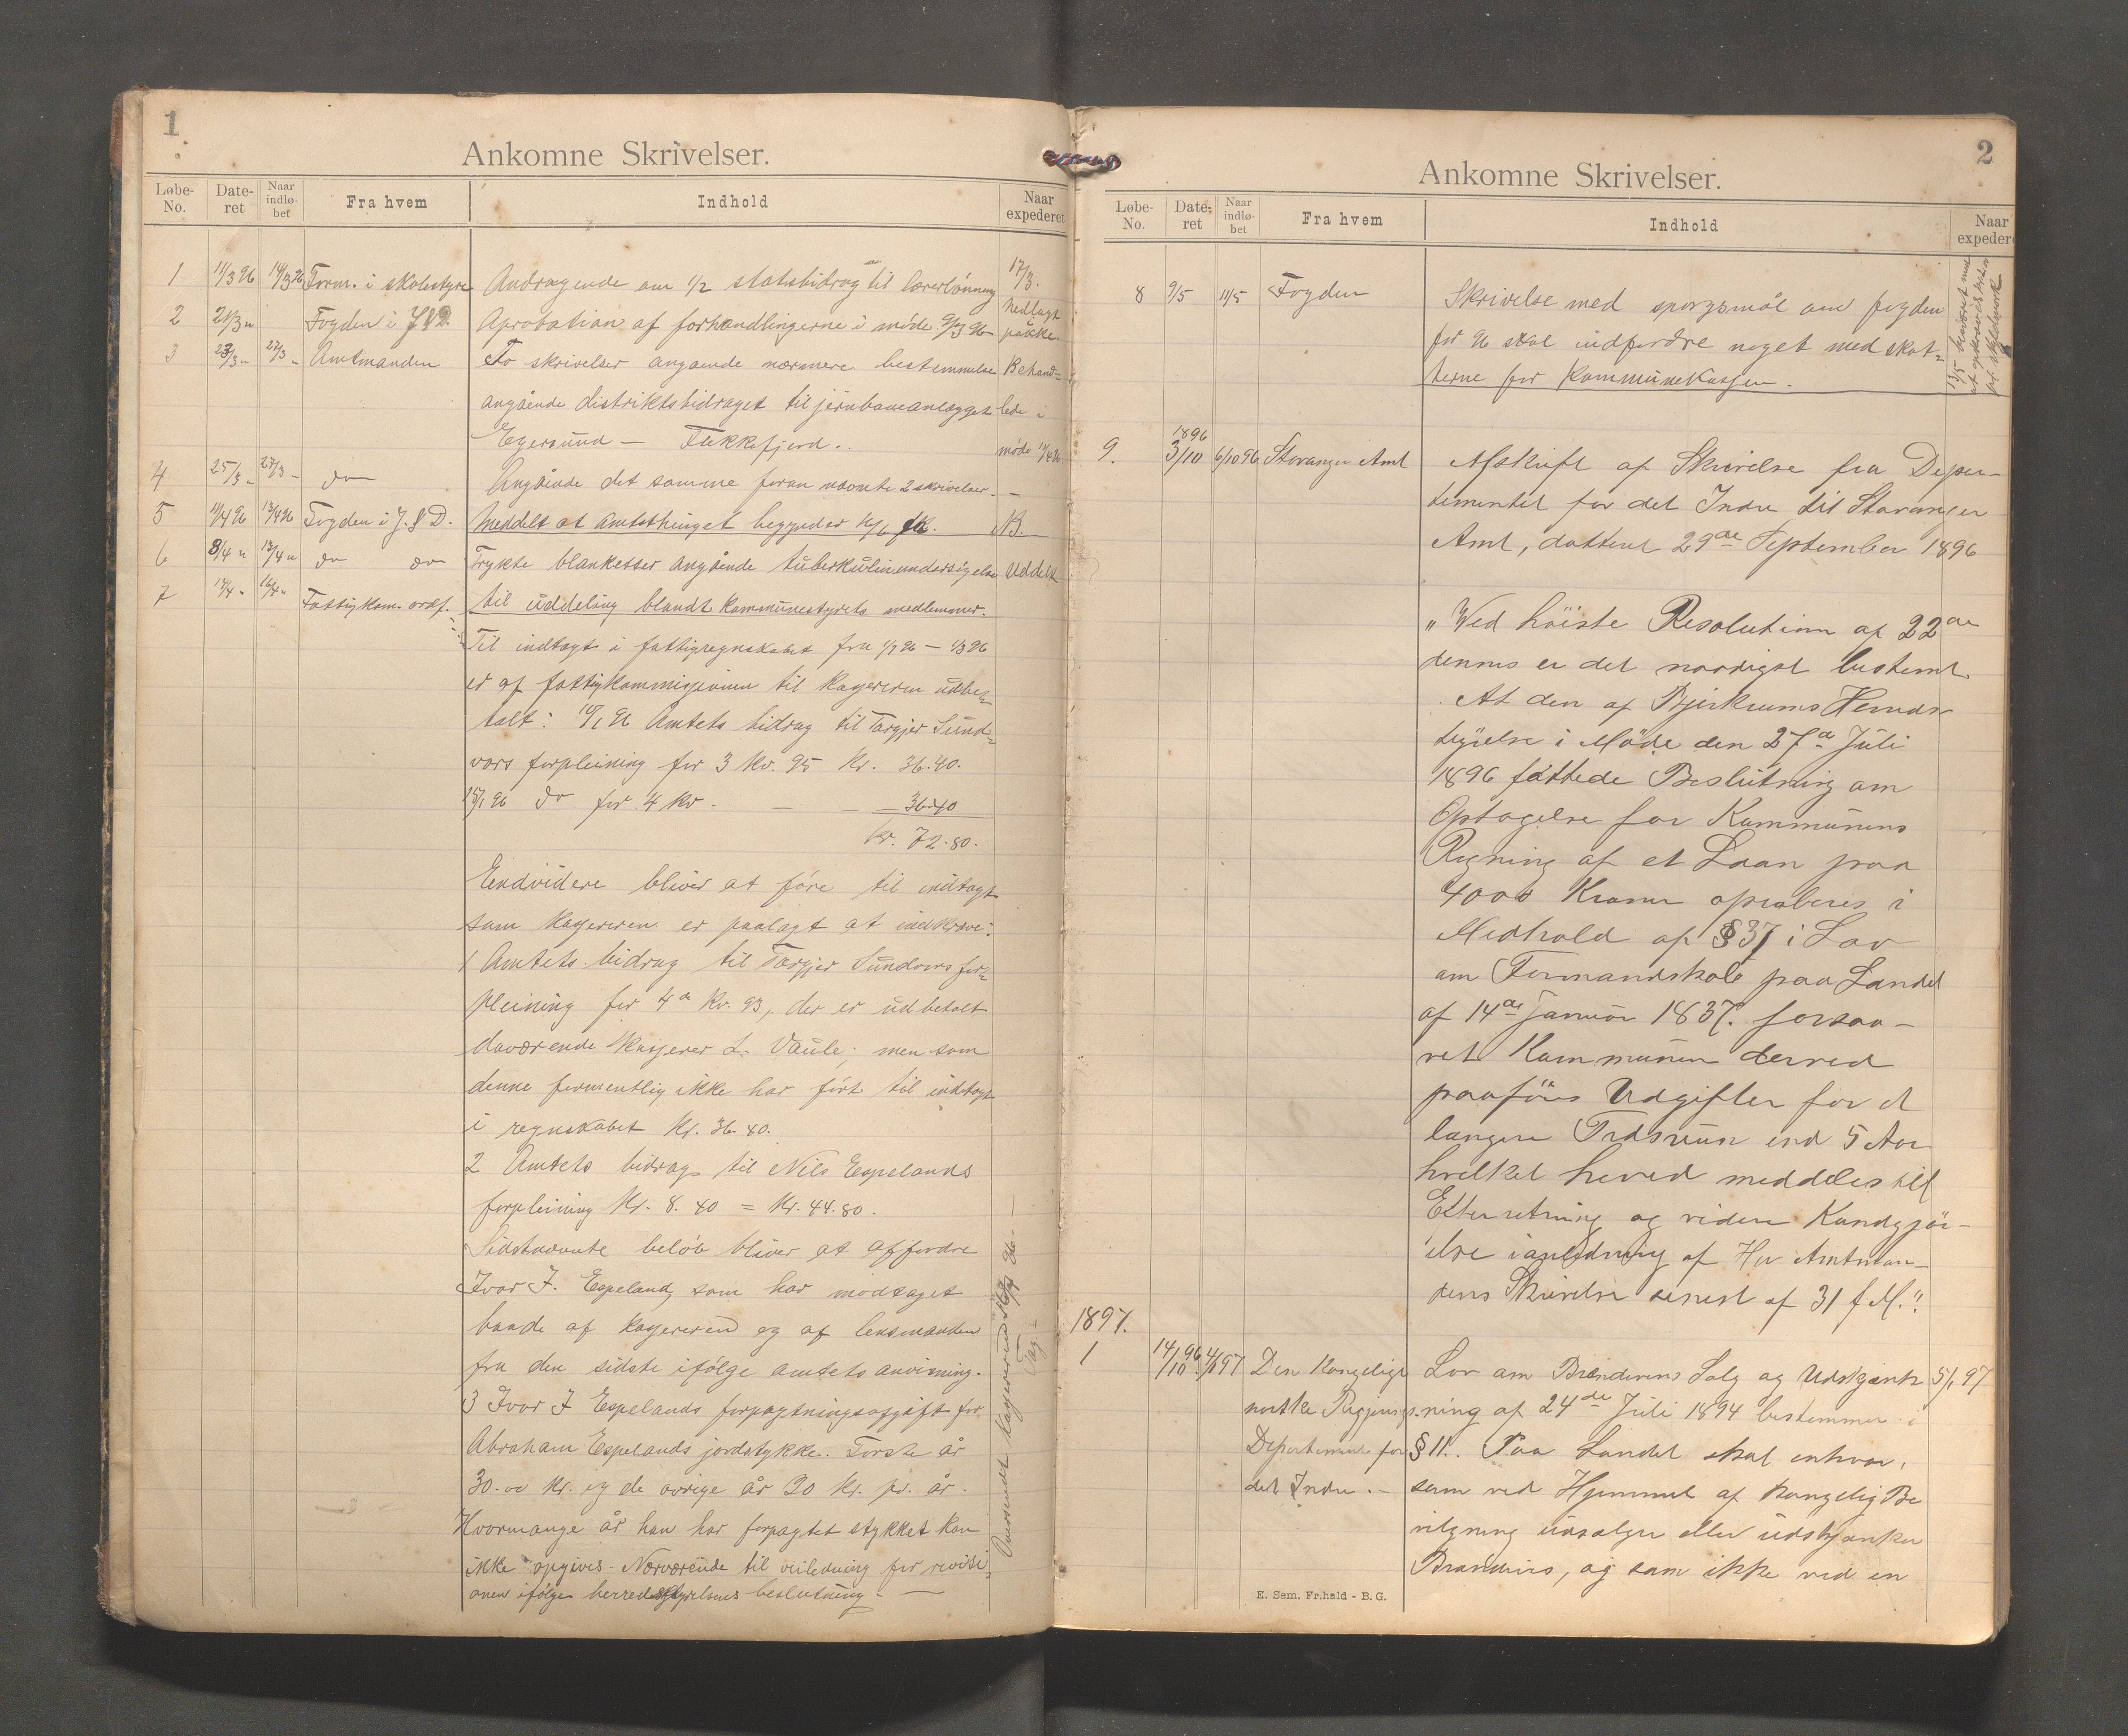 1
Ankomne Skrivelser.
Løbe-No. Dateret Naar indløbet Fra hvem Indhold Naar expederet
1 11/3 96 14/3 96 Form. i skolestyre Andragende om 1/2 statsbidrag til lærerlønning 17/3.
2 21/3 " Fogden i J & D Aprobation af forhandlingerne i møde 9/3 96 Nedlagt pakke.
3 23/3 - 27/3 - Amtmanden To skrivelser angaende nærmere bestemmelse Behand-
angående distriktsbidraget til jernbaneanlægget lede i
Egersund — Flekkefjord. møde
4 25/3 - 27/3 - do Angående det samme foran nævnte 2 skrivelser. —
5 11/4 96 13/4 96 Fogden i J. & D. Meddelt at Amtsthinget begynder NB.
6 8/4 " 13/4 " do do Trykte blanketter angående tuberkulinundersøgelse Uddelt
til uddeling blandt kommunestyrets medlemmer.
7 Fattigkom. ordf.
Til indtægt i fattigregnskabet fra 1/1 96 — 1/3 96
er af fattigkommisjonen til kassereren udbe-
talt: 10/1 96 Amtets bidrag til Targjer Sund-
vors forpleining for 3 kv. 95 Kr. 36.40.
15/1 96 do for 4 kv. — — 36.40
Kr. 72.80.
Endvidere bliver at føre til indtægt
som kassereren er paalagt at indkræve:
1 Amtets bidrag til Targjer Sundvors for-
pleining for 4de Kv. 93, der er udbetalt
daværende kasserer L. Vaule; men som
denne formentlig ikke har ført til indtægt
i regnskabet Kr. 36.40.
2 Amtets bidrag til Nils Espelands
forpleining Kr. 8.40 = Kr. 44.80.
Sidstnævnte beløb bliver at affordre
Ivar J. Espeland, som har modtaget
baade af kassereren og af lensmanden
fra den sidste ifølge amtets anvisning.
3 Ivar J Espelands forpagtningsafgift for
Abraham Espelands jordstykke. Første år
30.00 Kr. og de øvrige år 20 Kr. pr. år.
Hvormange år han har forpagtet stykket kan
ikke opgives. Nærværende til veiledning for revisi-
onen ifølge herredsstyrelsens beslutning. —
2
Ankomne Skrivelser.
Løbe-No. Dateret Naar indløbet Fra hvem Indhold Naar expederet
8 9/5 11/5 Fogden Skrivelse med spørgsmål om fogden
for 96 skal indfordre noget med skat-
terne for Kommunekassen.
9. 1896 3/10 6/10 96 Stavanger Amt Afskrift af Skrivelse fra Depar-
tementet for det Indre til Stavanger
Amt, dattert 29de September 1896
"Ved høiste Resolution af 22de
dennes er det naadigst bestemt.
At den af Bjerkreims Herreds-
styrelse i Møde den 27de Juli
1896 fattede Beslutning om
Optagelse for Kommunens
Regning af et Laan paa
4000 Kroner aproberes i
Medhold af § 37 i Lov
om Formandskab paa Landet
af 14de Januar 1837. forsaa-
vet Kommunen derved
paaføres Udgifter for et
længere Tidsrum end 5 Aar
hvilket herved meddeles til
Efterretning og videre Kundgjør-
else i anledning af Hr Amtman-
dens Skrivelse senest af 31 f. M."
1897.
1 14/10 96 4/1 97 Den Kongelige Lov om Brændevins Salg og Udskjænk 5/1 97
norske Regjerings- ning af 24de Juli 1894 bestemmer i
Departement for § 11. Paa Landet skal enhver,
det Indre. — som ved Hjemmel af Kongelig Be
vilgning udsælger eller udskjænker
Brændevin, og som ikke ved en
E. Sem. Fr.hald - B. G.